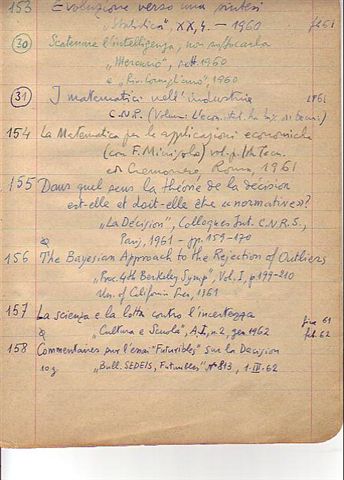 153 Evoluzione verso una sintesi
"Statistica", XX, 4. – 1960
30 Scatenare l'intelligenza, non soffocarla
"Mercurio", sett. 1960
e 1960
31 I matematici nell'industria
C.N.R. (Volume
154 La Matematica per le applicazioni economiche
(con F. Minisola) vol.
Cremonese Roma, 1961
155 Dans quel sens la théorie de la décision
est-elle et doit-elle être «normative»?
"La Décision", Colloques Int. C.N.R.S.,
Paris, 1961 – pp. 159-170
156 The Bayesian Approach to the Rejection of Outliers
"Proc. 4th Berkeley Symp", Vol. I, p. 199-210
Un. of California Press, 1961
157 La scienza e la lotta contro l'incertezza
"Cultura e Scuola", A.I, n. 2, gen 1962
61
62
158 Commentaires sur l'essai "Futuribles" sur la Décision
"Bull. SEDEIS, Futuribles" N° 813, 1. IV. 62